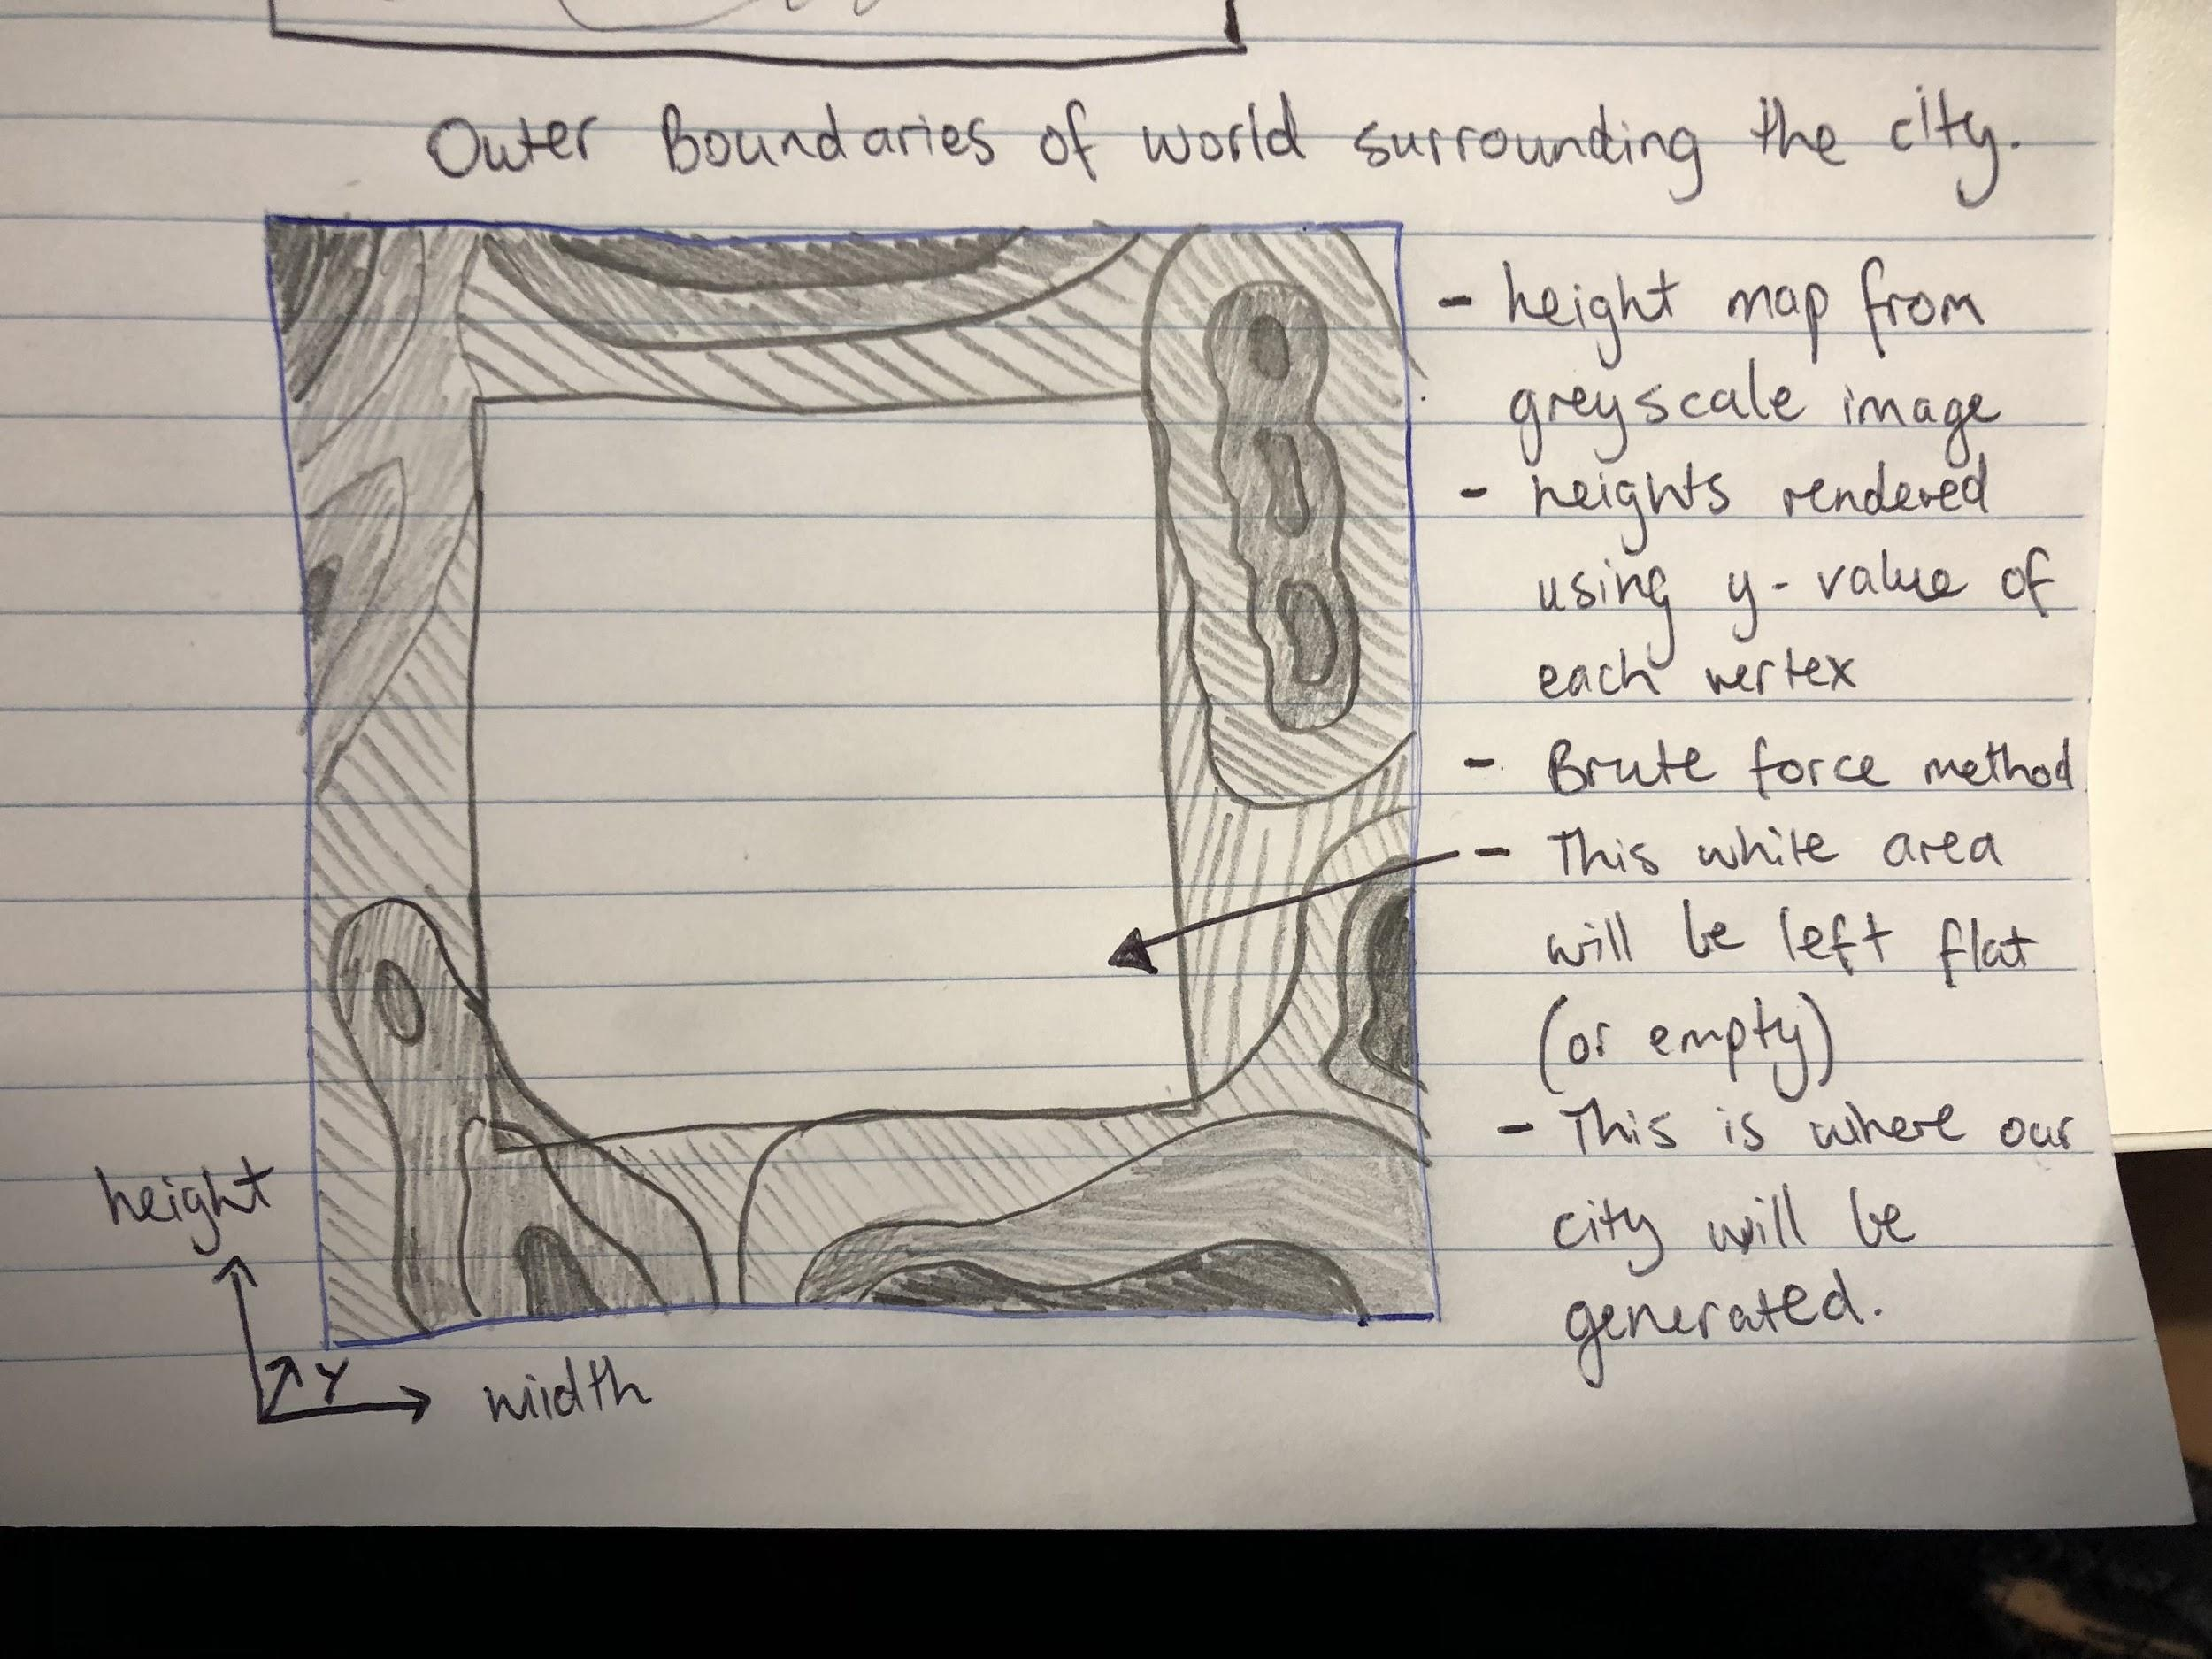 Outer Boundaries of world surrounding the city.
- height map from
greyscale image
- heights rendered
using y-value of
each vertex
- Brute force method
- This white area
will be left flat
(or empty)
- This is where our
city will be
generated.
height
Y
width